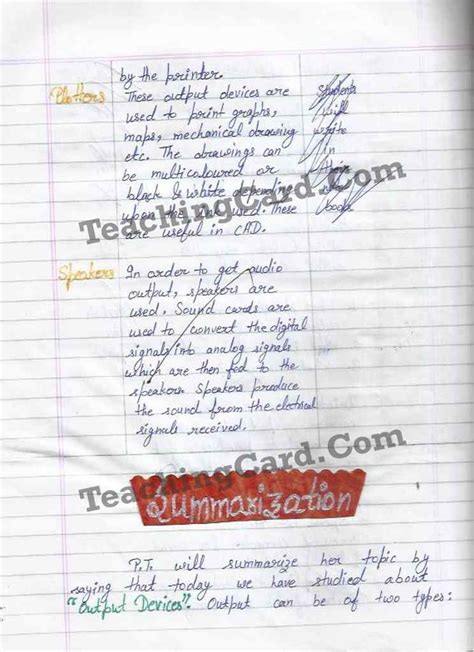 by the printer.
Plotters
These output devices are
used to print graphs,
maps, mechanical drawing
etc. The drawings can
be multicoloured or
black & white depending
upon the ink used. These
are useful in CAD.
Students
will
write
in
their
book
TeachingCard.Com
Speakers
In order to get audio
output, speakers are
used. Sound cards are
used to convert the digital
signals into analog signals
which are then fed to the
speakers. Speakers produce
the sound from the electrical
signals received.
TeachingCard.Com
Summarization
P.T. will summarize her topic by
saying that today we have studied about
"Output Devices". Output can be of two types: